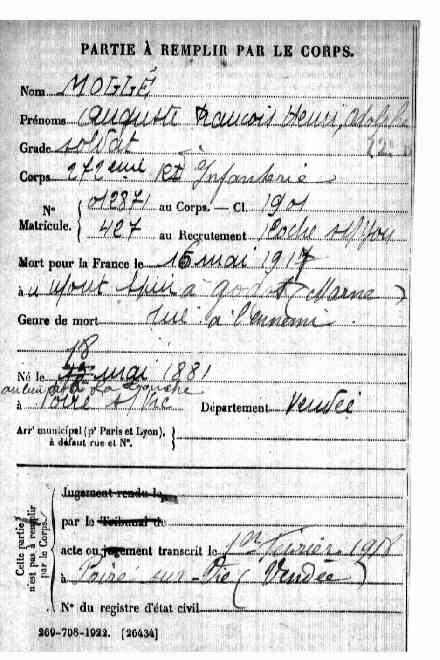 PARTIE À REMPLIR PAR LE CORPS.
Nom MOLLÉ
Prénoms Auguste François Henri, Adolphe
Grade soldat
Corps 272eme Rt Infanterie
N° Matricule. { 012871 au Corps. — Cl. 1901
427 au Recrutement Roche s/Yon
Mort pour la France le 16 mai 1917
à (Marne)
Genre de mort tué à l'ennemi
18
Né le mai 1881
au lieu dit
à Poiré s/Vie Département Vendée
Arrt municipal (pr Paris et Lyon), à défaut rue et N°. }
Cette partie n'est pas à remplir par le Corps.
Jugement rendu le
par le Tribunal de
acte ou jugement transcrit le 1er février 1918
à Poiré-sur-Vie (Vendée)
N° du registre d'état civil
269-708-1922. [26434]